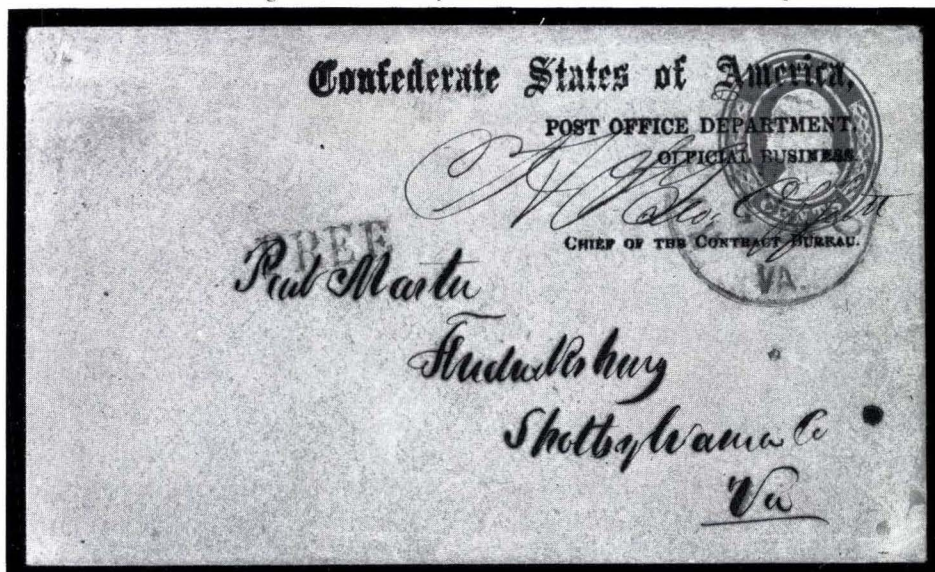 Confederate States of America,
POST OFFICE DEPARTMENT,
OFFICIAL BUSINESS.
CHIEF OF THE CONTRACT BUREAU.
FREE
VA.
Post Master
Fredricksburg
Spottsylvania Co
Va